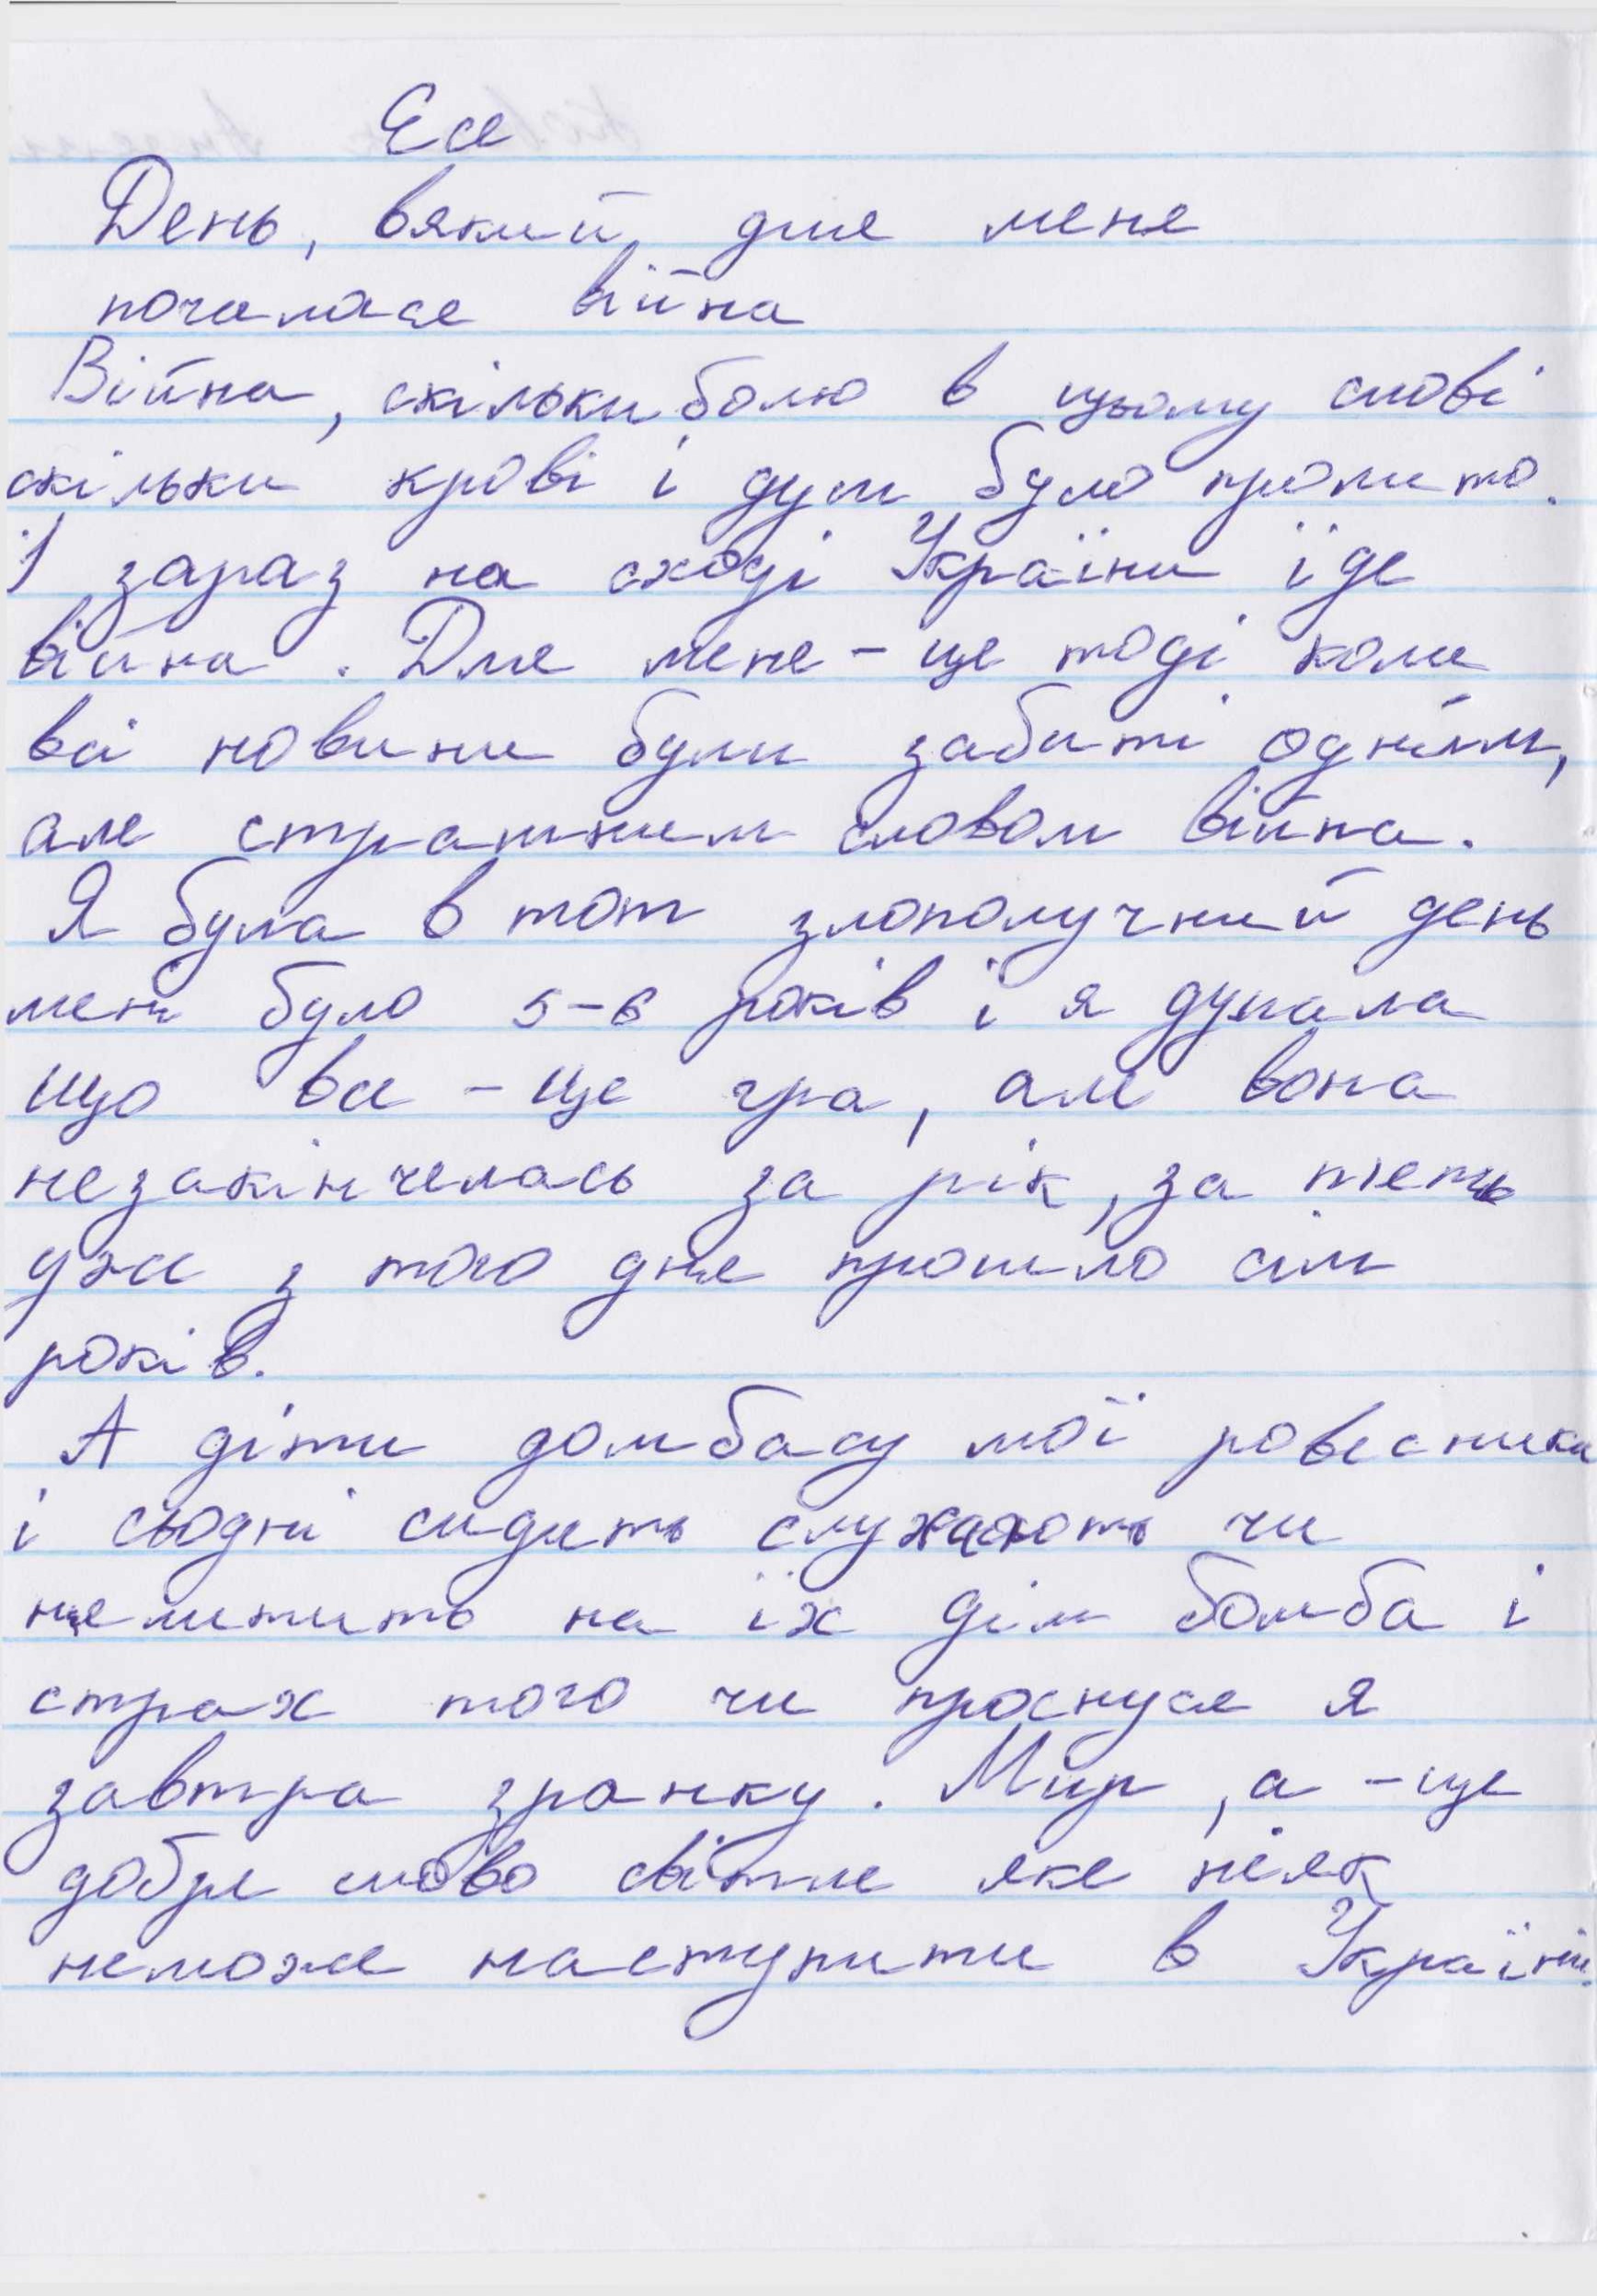 Есе
День, вякий для мене
почалася війна
Війна, скільки болю в цьому слові
скільки крові і душ було пролито.
І зараз на сході України їде
війна. Для мене - це тоді коли
всі новини були забиті одним,
але страшним словом війна.
Я була в тот злополучний день
мені було 5-6 років і я думала
що все - це гра, але вона
незакінчелась за рік, за п'ять
уже з того дня прошло сім
років.
А діти домбасу мої ровесники
і сьодні сидять служають чи
нелитить на їх дім бомба і
страх того чи проснуся я
завтра зранку. Мир, а - це
добре слово світле яке ніяк
неможе наступити в Україні.